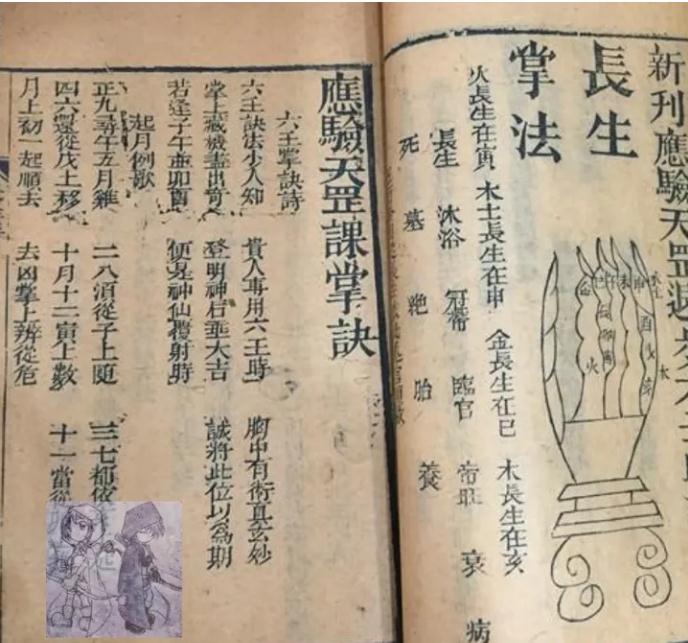 新刊應驗天罡
長生
掌法
火長生在寅 水土長生在申 金長生在巳 木長生在亥
長生 沐浴 冠帶 臨官 帝旺 衰 病
死 墓 絶 胎 養
應驗天罡課掌訣
六壬掌訣詩
六壬訣法少人知 貴人專用六壬時 胸中有術真玄妙
掌上藏機盡出奇 登明神后並大吉 誠將此位以為期
若逢子午並卯酉 便是神仙覆射時
起月例歌
正九尋午五月雞 二八須從子上隨 三七都依
四六還從戊上移 十月十二寅上數 十一當從
月上初一起順去 去凶掌上辨從危